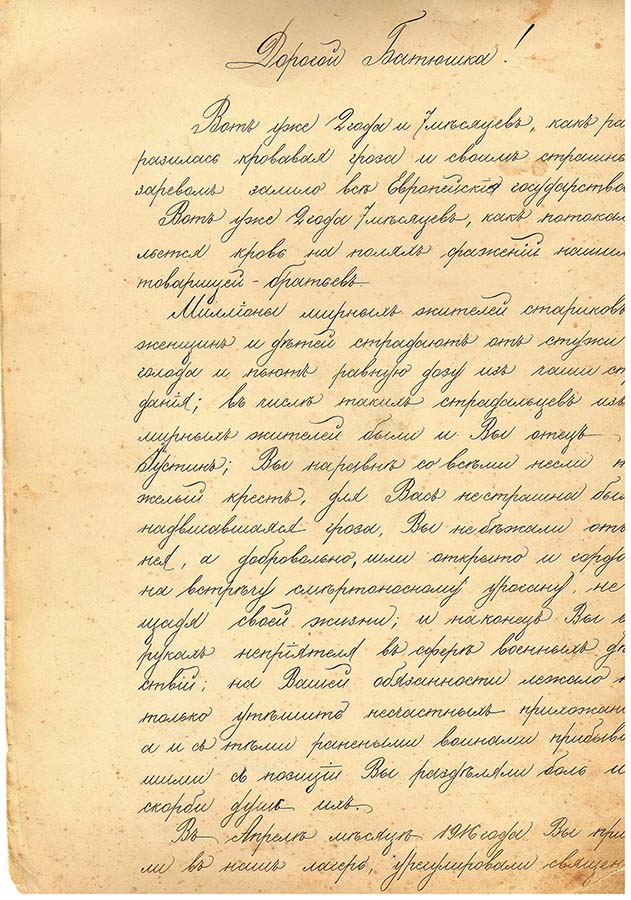 Дорогой Батюшка!
Вотъ уже 2 года и 7 мѣсяцевъ, какъ раз
разилась кровавая гроза и своимъ страшны
заревомъ залило всѣ Европейскія государства
Вотъ уже 2 года 7 мѣсяцевъ, какъ потокам
льется кровь на поляхъ сраженій нашихъ
товарищей-братьевъ.
Милліоны мирныхъ жителей стариковъ
женщинъ и дѣтей страдаютъ отъ стужи
голода и пьютъ равную дозу изъ чаши ст
данія; въ числѣ такихъ страдальцевъ изъ
мирныхъ жителей были и Вы отецъ
Іустинъ; Вы наравнѣ со всѣми несли т
желый крестъ, для Васъ нестрашна был
надвигавшаяся гроза, Вы не бѣжали отъ
нея, а добровольно, шли открыто и гордо
на встрѣчу смертоносному урагану, не
щадя своей жизни; и наконецъ Вы в
рукахъ непріятеля въ сферѣ военныхъ дѣ
ствій; на Вашей обязанности лежало н
только утѣшить несчастныхъ прихожан
а и съ тѣми ранеными воинами прибыв
шими съ позицій Вы раздѣляли боль и
скорби душъ ихъ.
Въ Апрелѣ мѣсяцѣ 1916 года Вы при
ли въ нашъ лагерь, урегулировали священ